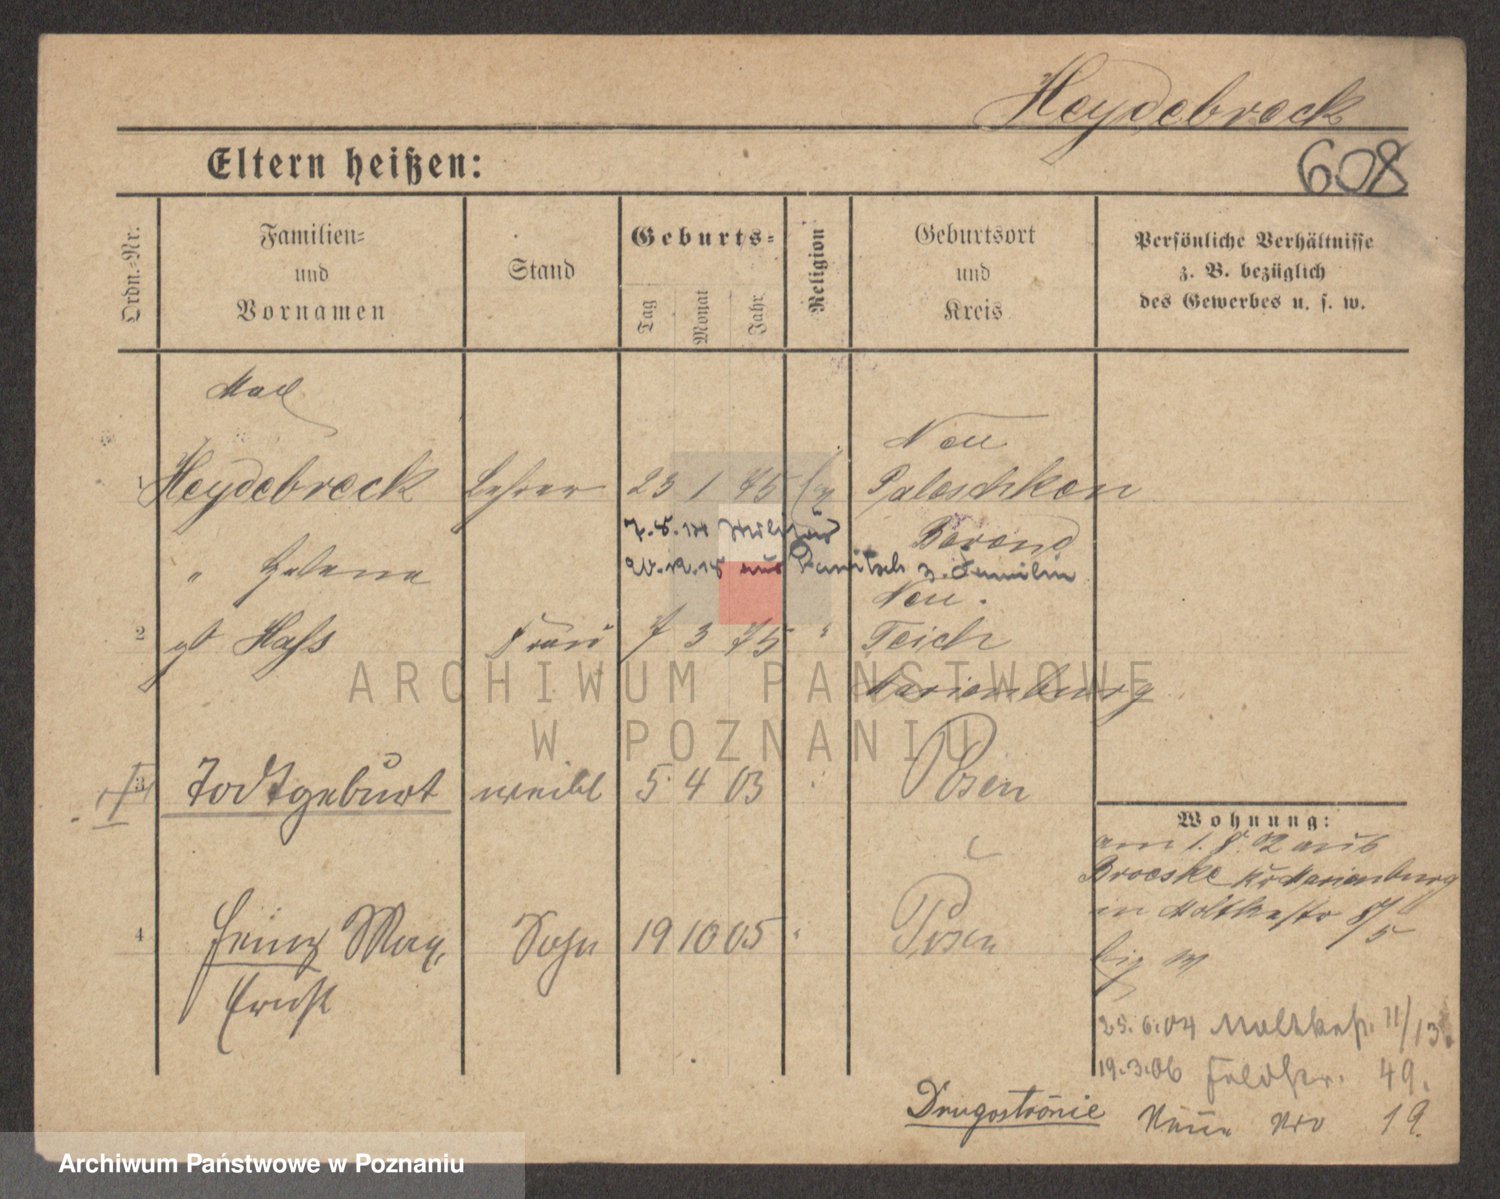 Heydebreck
608
Eltern heißen:
Ordn.=Nr.
Familien=
und
Vornamen
Stand
Geburts=
Tag
Monat
Jahr
Religion
Geburtsort
und
Kreis
Persönliche Verhältnisse
z. B. bezüglich
des Gewerbes u. s. w.
Max
1 Heydebreck Lehrer 23 1 75 Neu Paleschken
Berend
" Helene
2 gb Hass Frau 7 3 75 " Neu Teich
Marienburg
3 Todtgeburt weibl 5 4 03 " Posen
4 Heinz Max Sohn 19 10 05 " Posen
Ernst
Wohnung:
am 1. 8. 02 aus
Broeske Kr Marienburg
in Moltkestr 8/5
25.6.04 Moltkestr. 11/13.
19.3.06 Feldstr. 49.
Neue Nro 19.
Drugostronie
ARCHIWUM PAŃSTWOWE
W POZNANIU
Archiwum Państwowe w Poznaniu